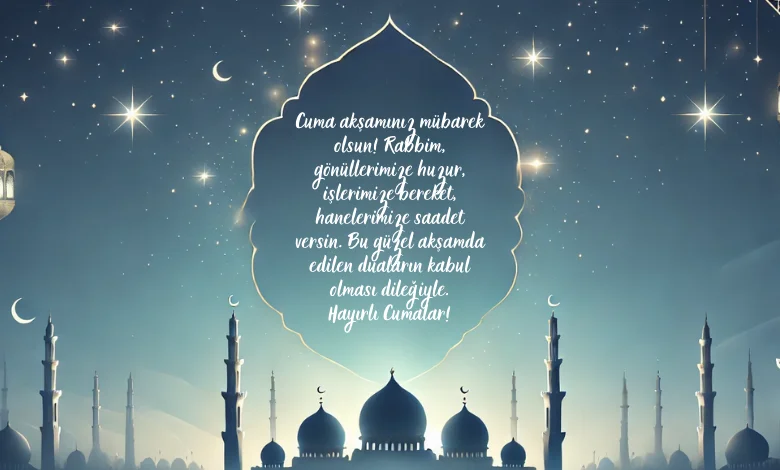 Cuma akşamınız mübarek
olsun! Rabbim,
gönüllerimize huzur,
işlerimize bereket,
hanelerimize saadet
versin. Bu güzel akşamda
edilen duaların kabul
olması dileğiyle.
Hayırlı Cumalar!